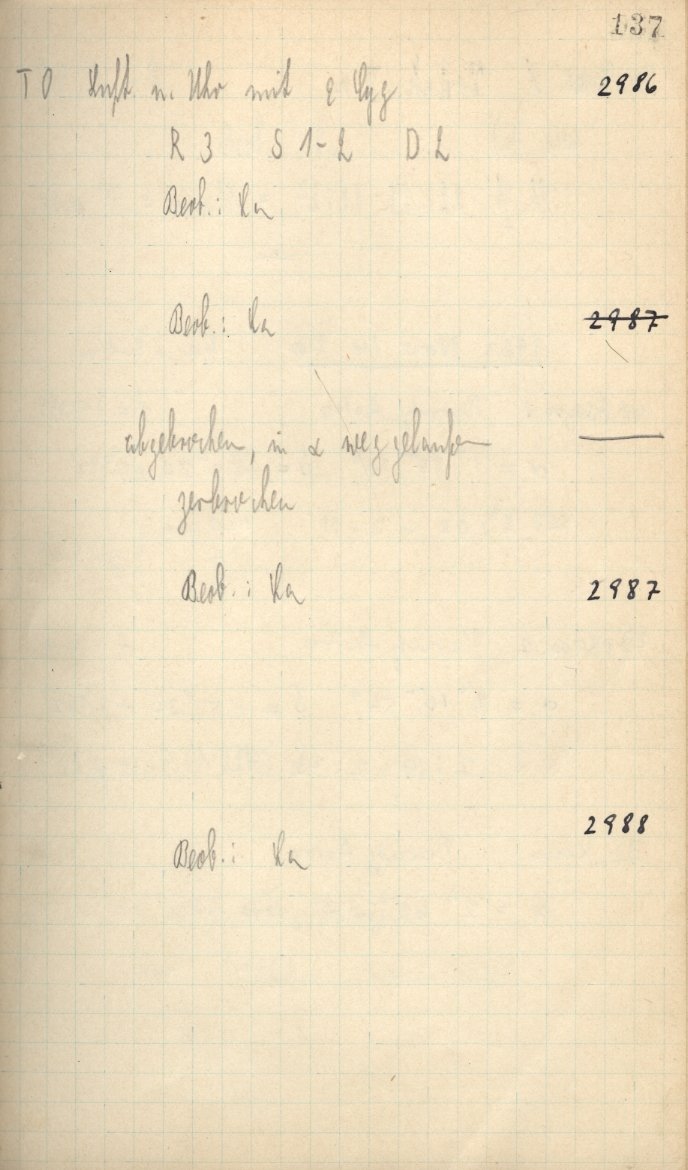 137
TO Luft u. Uhr mit Cyg 2986
R 3 S 1-2 D 2
Beob.: Ka
Beob.: Ka 2987
abgebrochen, in α weggelaufen
zerbrochen
Beob.: Ka 2987
2988
Beob.: Ka